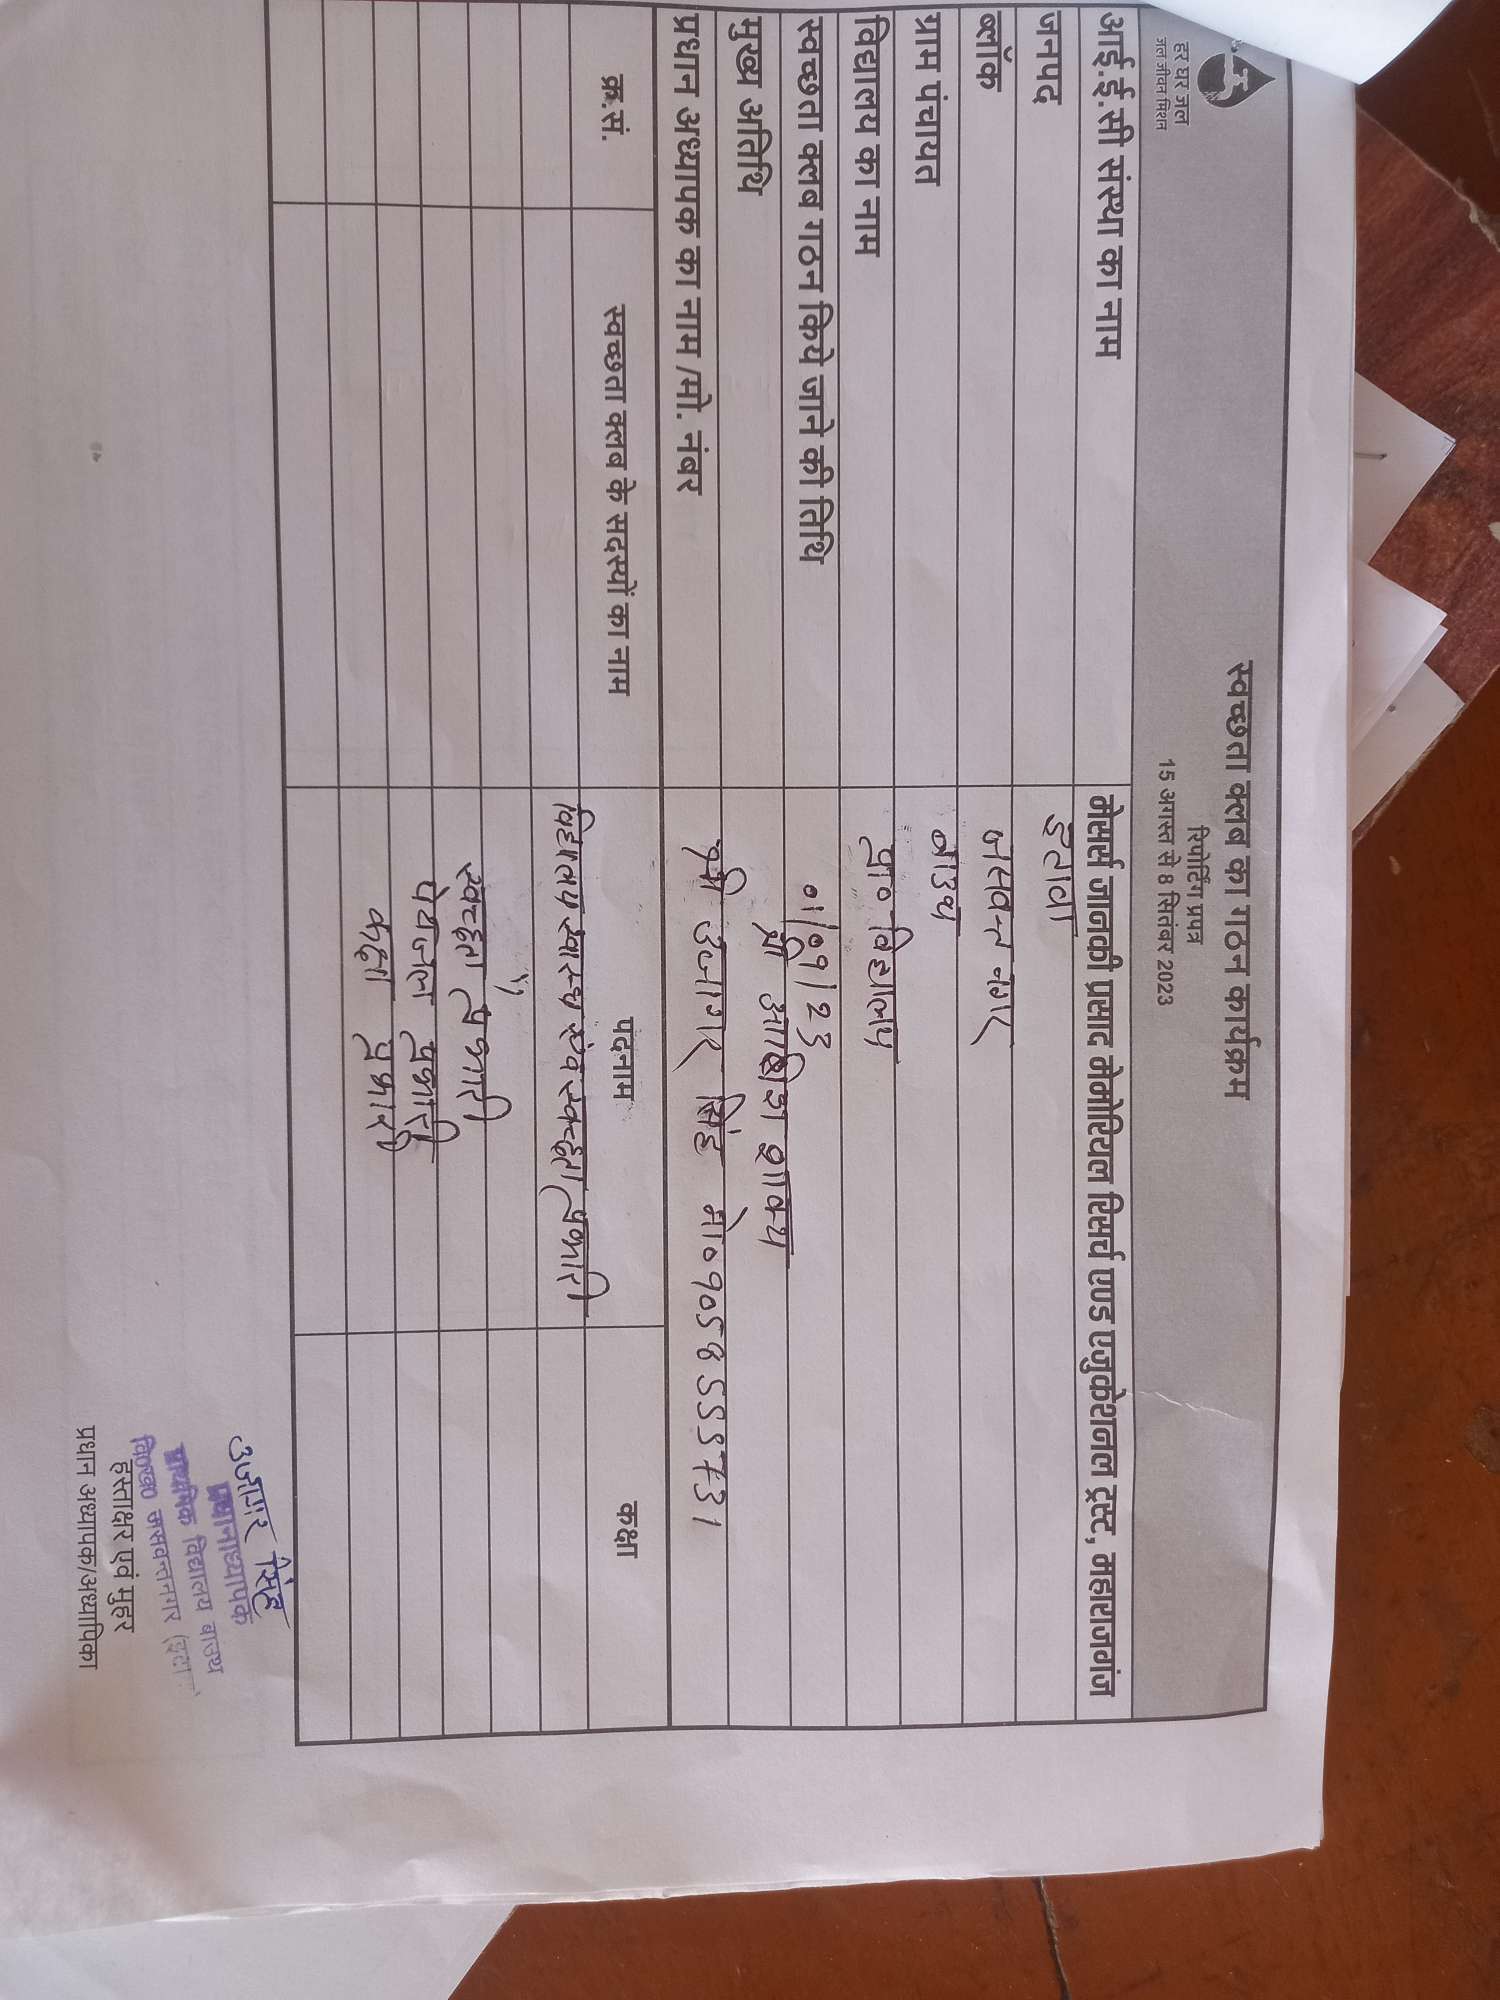 हर घर जल
जल जीवन मिशन
स्वच्छता क्लब का गठन कार्यक्रम
रिपोर्टिंग प्रपत्र
15 अगस्त से 8 सितंबर 2023
आई.ई.सी संस्था का नाम मेसर्स जानकी प्रसाद मेमोरियल रिसर्च एण्ड एजुकेशनल ट्रस्ट, महाराजगंज
जनपद इटावा
ब्लॉक जसवन्त नगर
ग्राम पंचायत बाउथ
विद्यालय का नाम प्रा० विद्यालय
स्वच्छता क्लब गठन किये जाने की तिथि ०1/०9/23
मुख्य अतिथि श्री
प्रधान अध्यापक का नाम /मो. नंबर श्री उजागर सिंह मो०
क्र.सं. स्वच्छता क्लब के सदस्यों का नाम पदनाम कक्षा
विद्यालय स्वास्थ्य एंव स्वच्छता प्रभारी
स्वच्छता प्रभारी
पेयजल प्रभारी
कक्षा प्रभारी
उजागर सिंह
प्रधानाध्यापक
प्राथमिक विद्यालय बाउथ
जसवन्तनगर
हस्ताक्षर एवं मुहर
प्रधान अध्यापक/अध्यापिका